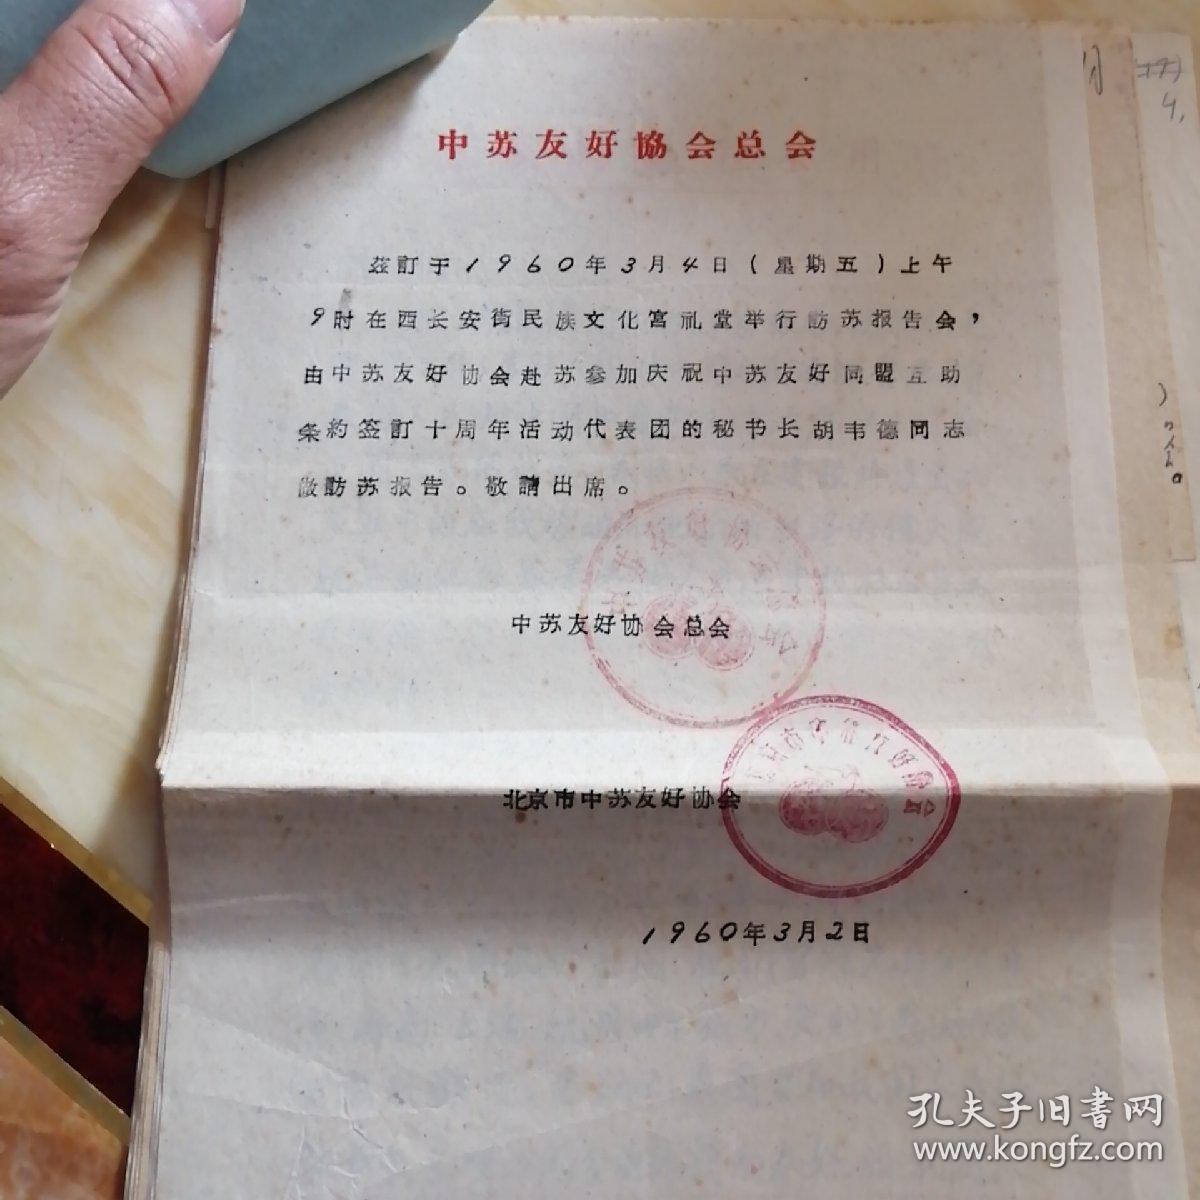 中苏友好協会总会
茲訂于1960年3月4日(星期五)上午
9时在西长安街民族文化宫礼堂举行訪苏报告会，
由中苏友好协会赴苏参加庆祝中苏友好同盟互助
条約签訂十周年活动代表团的秘书长胡韦德同志
做訪苏报告。敬請出席。
中苏友好协会总会
北京市中苏友好协会
1960年3月2日
孔夫子旧書网
www.kongfz.com